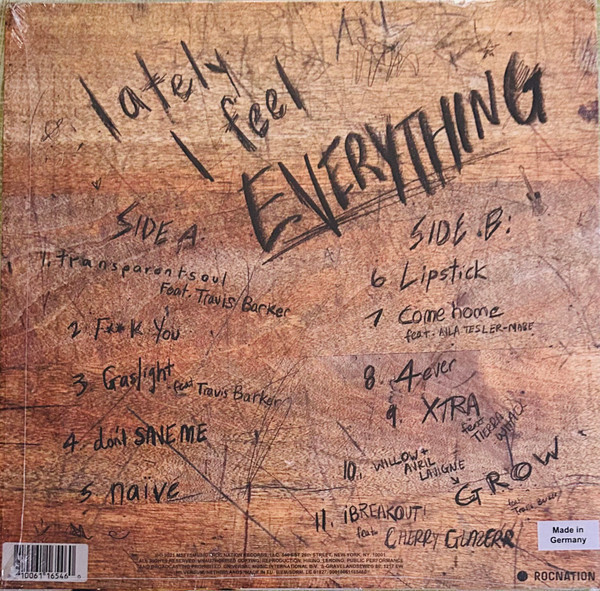 lately
I feel
EVERYTHING
SIDE A:
1. transparentsoul
feat. Travis Barker
2 F**K YOU
3. Gaslight feat Travis Barker
4. don't SAVE ME
5. naïve
SIDE B:
6 Lipstick
7 Come home
feat. AYLA TESLER-MABE
8. 4ever
9. XTRA
feat TIERRA WHACK
10. WILLOW + AVRIL LAVIGNE
GROW
feat. Travis Barker
11. ¡BREAKOUT!
feat. CHERRY GLAZERR
Made in
Germany
ROCNATION